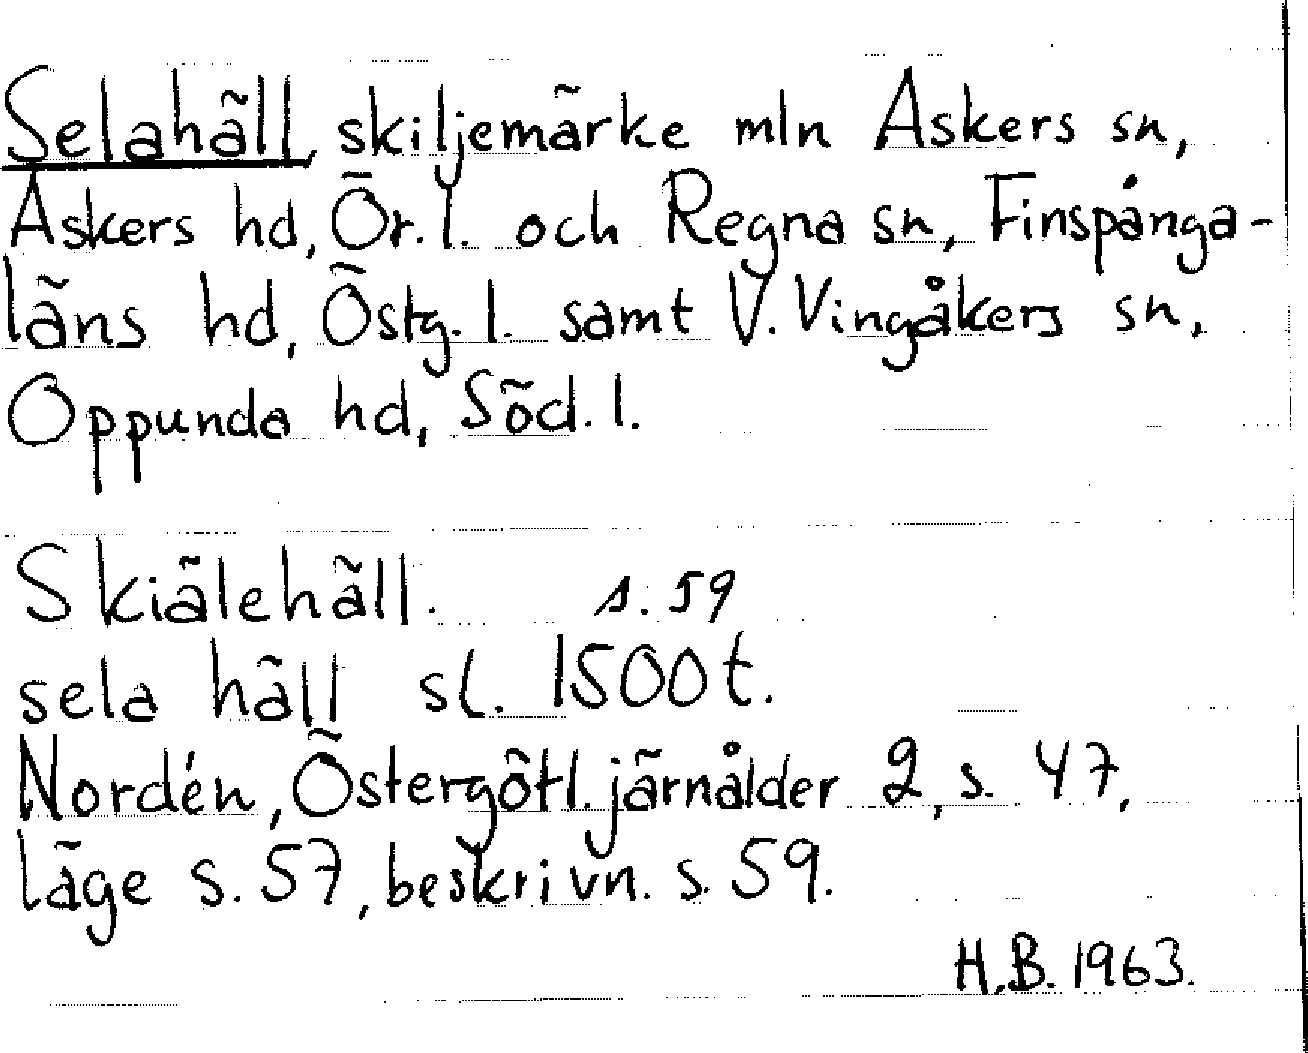 Selahäll, skiljemärke mln Askers sn,
Askers hd, Ör. l. och Regna sn, Finspånga-
läns hd, Östg. l. samt V. Vingåkers sn,
Oppunda hd, Söd. l.
Skiälehäll. s. 59
sela häll sl. 1500 t.
Nordén, Östergötl. järnålder 2, s. 47,
läge s. 57, beskrivn. s. 59.
H.B. 1963.